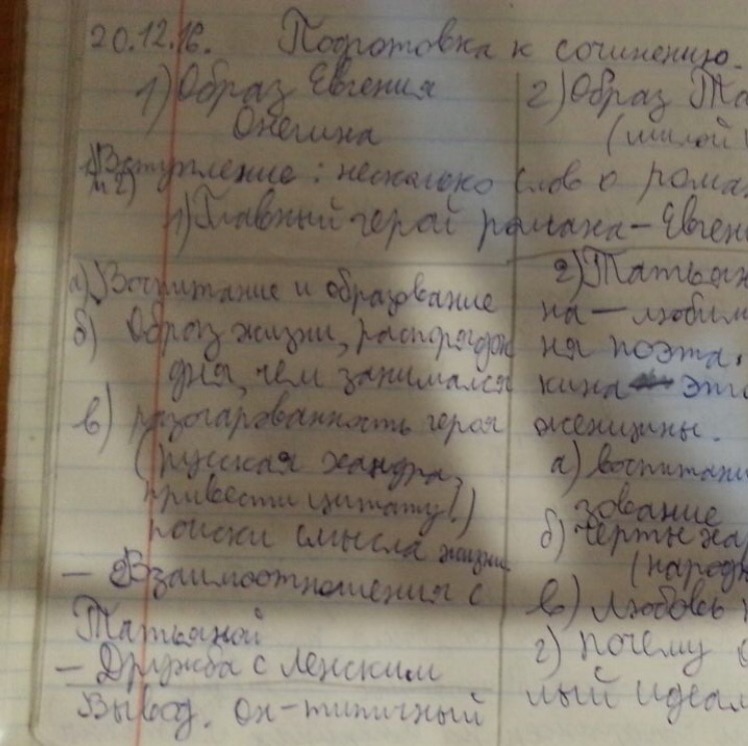 20.12.16. Подготовка к сочинению.
1) Образ Евгения
Онегина
Вступление: несколько слов о рома
1) Главный герой романа – Евген
а) Воспитание и образование
б) Образ жизни, распорядок
дня, чем занимался
в) разочарованность героя
(русская хандра,
привести цитату!)
поиски смысла жизни
– Взаимоотношения с
Татьяной
– Дружба с Ленским
Вывод. он – типичный
2) Образ Та
(милой
2) Татьян
на – любим
ня поэта.
кина это
женщины.
а) воспитани
зование
б) черты хар
(народн
в) любовь
г) почему
лый идеал